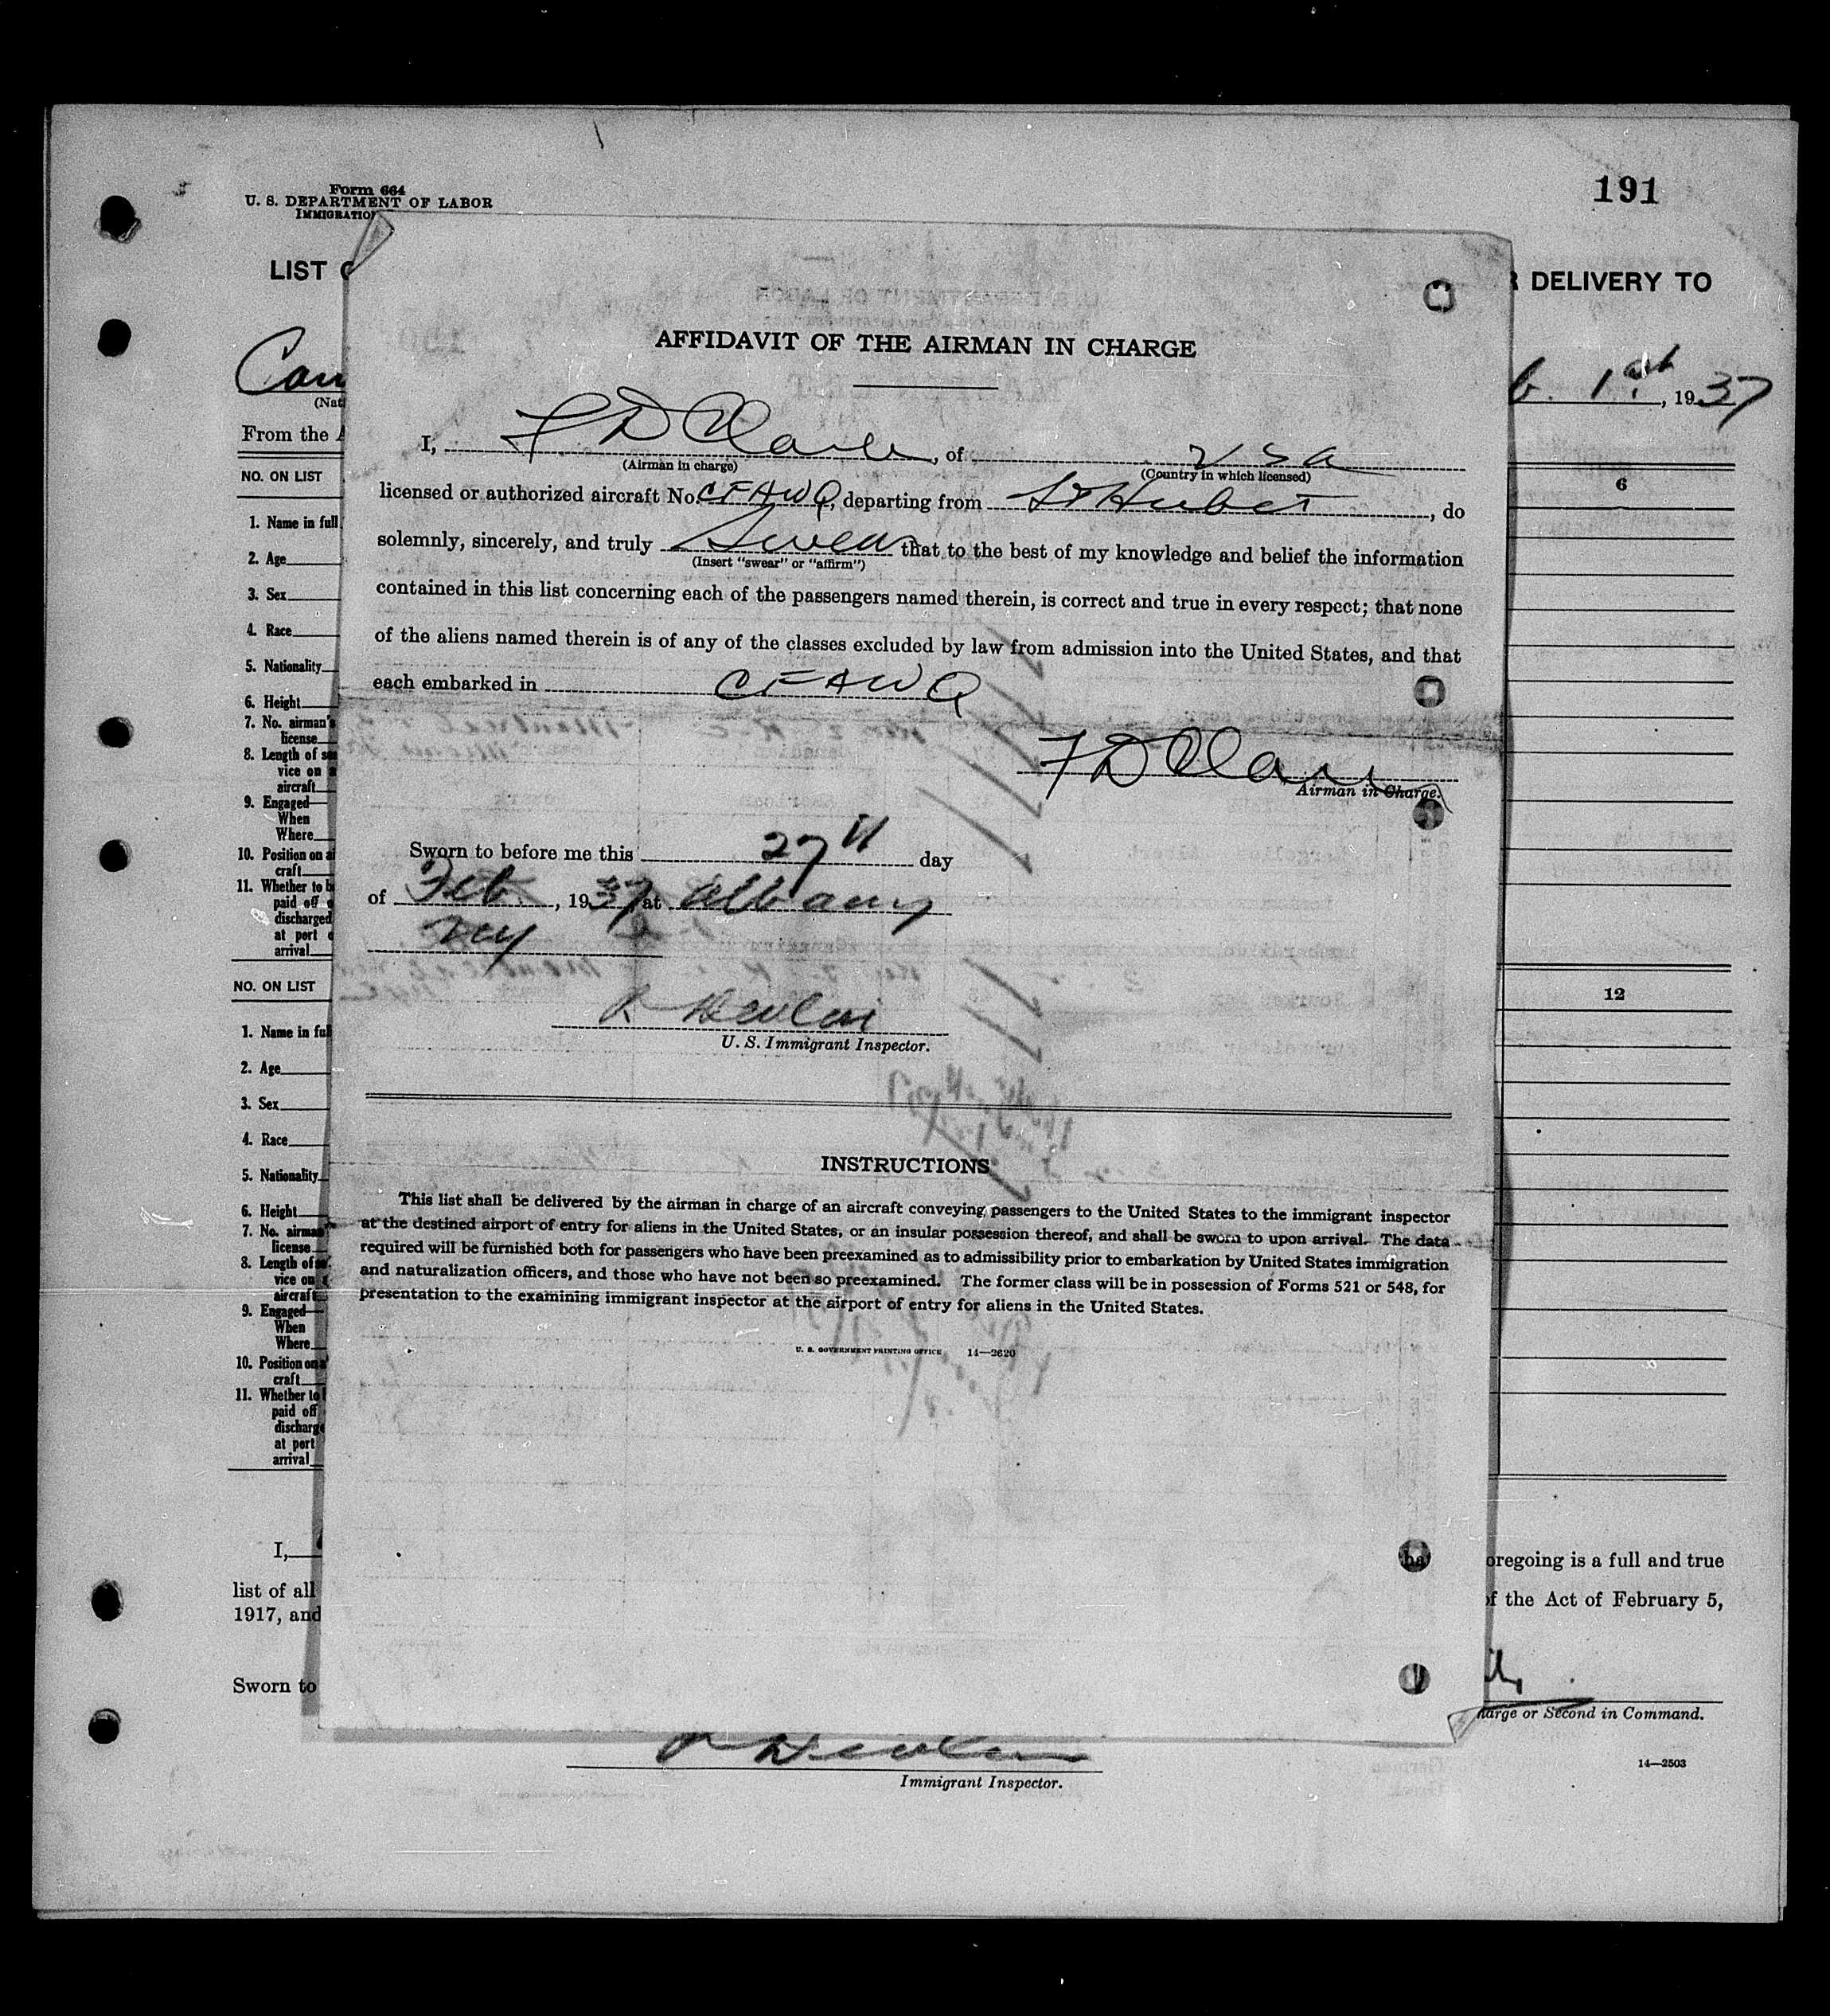 Form 664
U. S. DEPARTMENT OF LABOR
IMMIGRATION
191
LIST
R DELIVERY TO
1st, 1937
(Nat
From the
NO. ON LIST
6
1. Name in full
2. Age
3. Sex
4. Race
5. Nationality
6. Height
7. No. airman's
license
8. Length of ser
vice on
aircraft
9. Engaged—
When
Where
10. Position on ai
craft
11. Whether to be
paid off
discharged
at port
arrival
NO. ON LIST
12
1. Name in ful
2. Age
3. Sex
4. Race
5. Nationality
6. Height
7. No. airman
license
8. Length of
vice on
aircraft
9. Engaged—
When
Where
10. Position on
craft
11. Whether to
paid off
discharge
at port
arrival
I,
oregoing is a full and true
list of all
of the Act of February 5,
1917, and
Sworn to
harge or Second in Command.
Immigrant Inspector.
14—2503
AFFIDAVIT OF THE AIRMAN IN CHARGE
I, F D Clark, of USA
(Airman in charge) (Country in which licensed)
licensed or authorized aircraft No. CFAWQ, departing from St Hubert, do
solemnly, sincerely, and truly Swear that to the best of my knowledge and belief the information
(Insert "swear" or "affirm")
contained in this list concerning each of the passengers named therein, is correct and true in every respect; that none
of the aliens named therein is of any of the classes excluded by law from admission into the United States, and that
each embarked in CFAWQ
F D Clark
Airman in Charge.
Sworn to before me this 27th day
of Feb., 1937 at Albany
NY
U. S. Immigrant Inspector.
INSTRUCTIONS
This list shall be delivered by the airman in charge of an aircraft conveying passengers to the United States to the immigrant inspector
at the destined airport of entry for aliens in the United States, or an insular possession thereof, and shall be sworn to upon arrival. The data
required will be furnished both for passengers who have been preexamined as to admissibility prior to embarkation by United States immigration
and naturalization officers, and those who have not been so preexamined. The former class will be in possession of Forms 521 or 548, for
presentation to the examining immigrant inspector at the airport of entry for aliens in the United States.
U. S. GOVERNMENT PRINTING OFFICE 14—2620